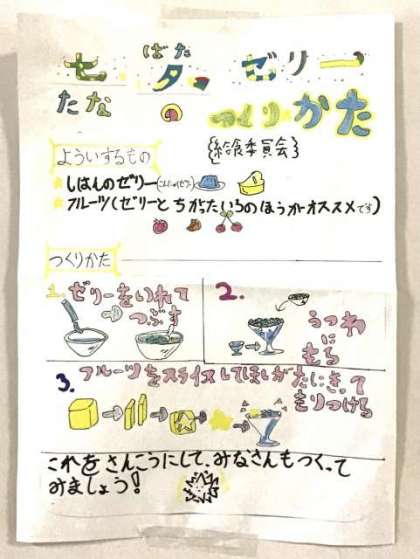 七夕ゼリー
たなばた
つくりかた
{給食委員会}
よういするもの
★しはんのゼリー
★フルーツ(ゼリーとちがういろのほうがオススメです)
つくりかた
1.ゼリーをいれて
つぶす
2.
うつわ
に
もる
3.フルーツをスライスしてほしがたにきって
もりつける
これをさんこうにして、みなさんもつくって
みましょう!